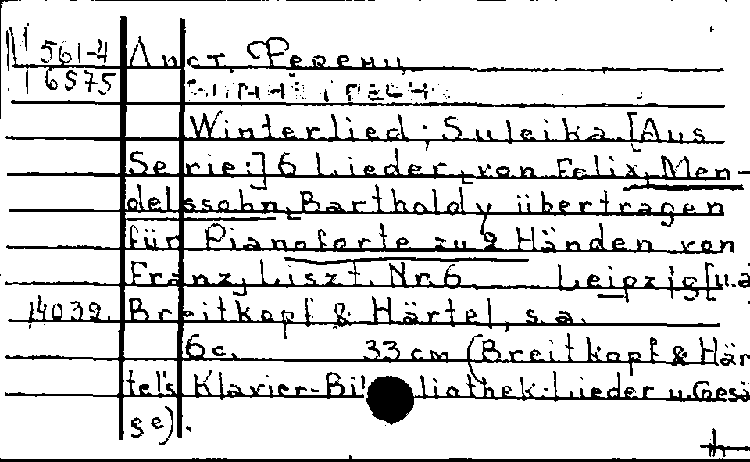 М 561-4 Лист, Ференц
6575
Winterlied; Suleika [Aus
Serie:] 6 Lieder von Felix Men-
delssohn, Bartholdy übertragen
für Pianoforte zu 2 Händen von
Franz Liszt. Nr. 6 Leipzig [u.a
14039. Breitkopf & Härtel, s.a.
6 c. 33 см (Breitkopf & Här
tel's Klavier-Bibliothek: Lieder u. Gesä
se).